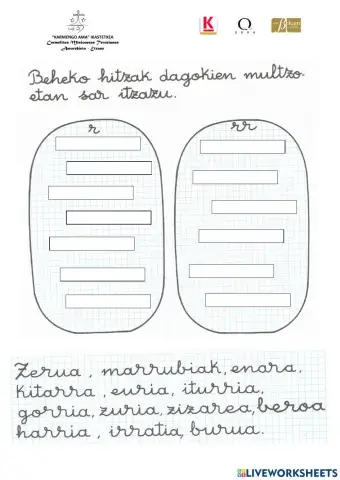 "KARMENGO AMA" IKASTETXEA
Carmelitas Misioneras Teresianas
Amorebieta - Etxano
K
Q
Bikain
Beheko hitzak dagokien multzo-
etan sar itzazu.
r
rr
Zerua, marrubiak, enara,
Kitarra, euria, iturria,
gorria, zuria, zizarea, beroa
harria, irratia, burua.
LIVEWORKSHEETS